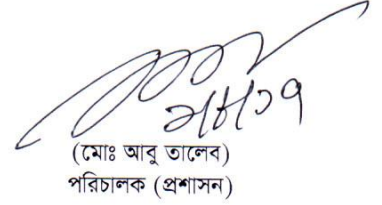 (মোঃ আবু তালেব)
পরিচালক (প্রশাসন)